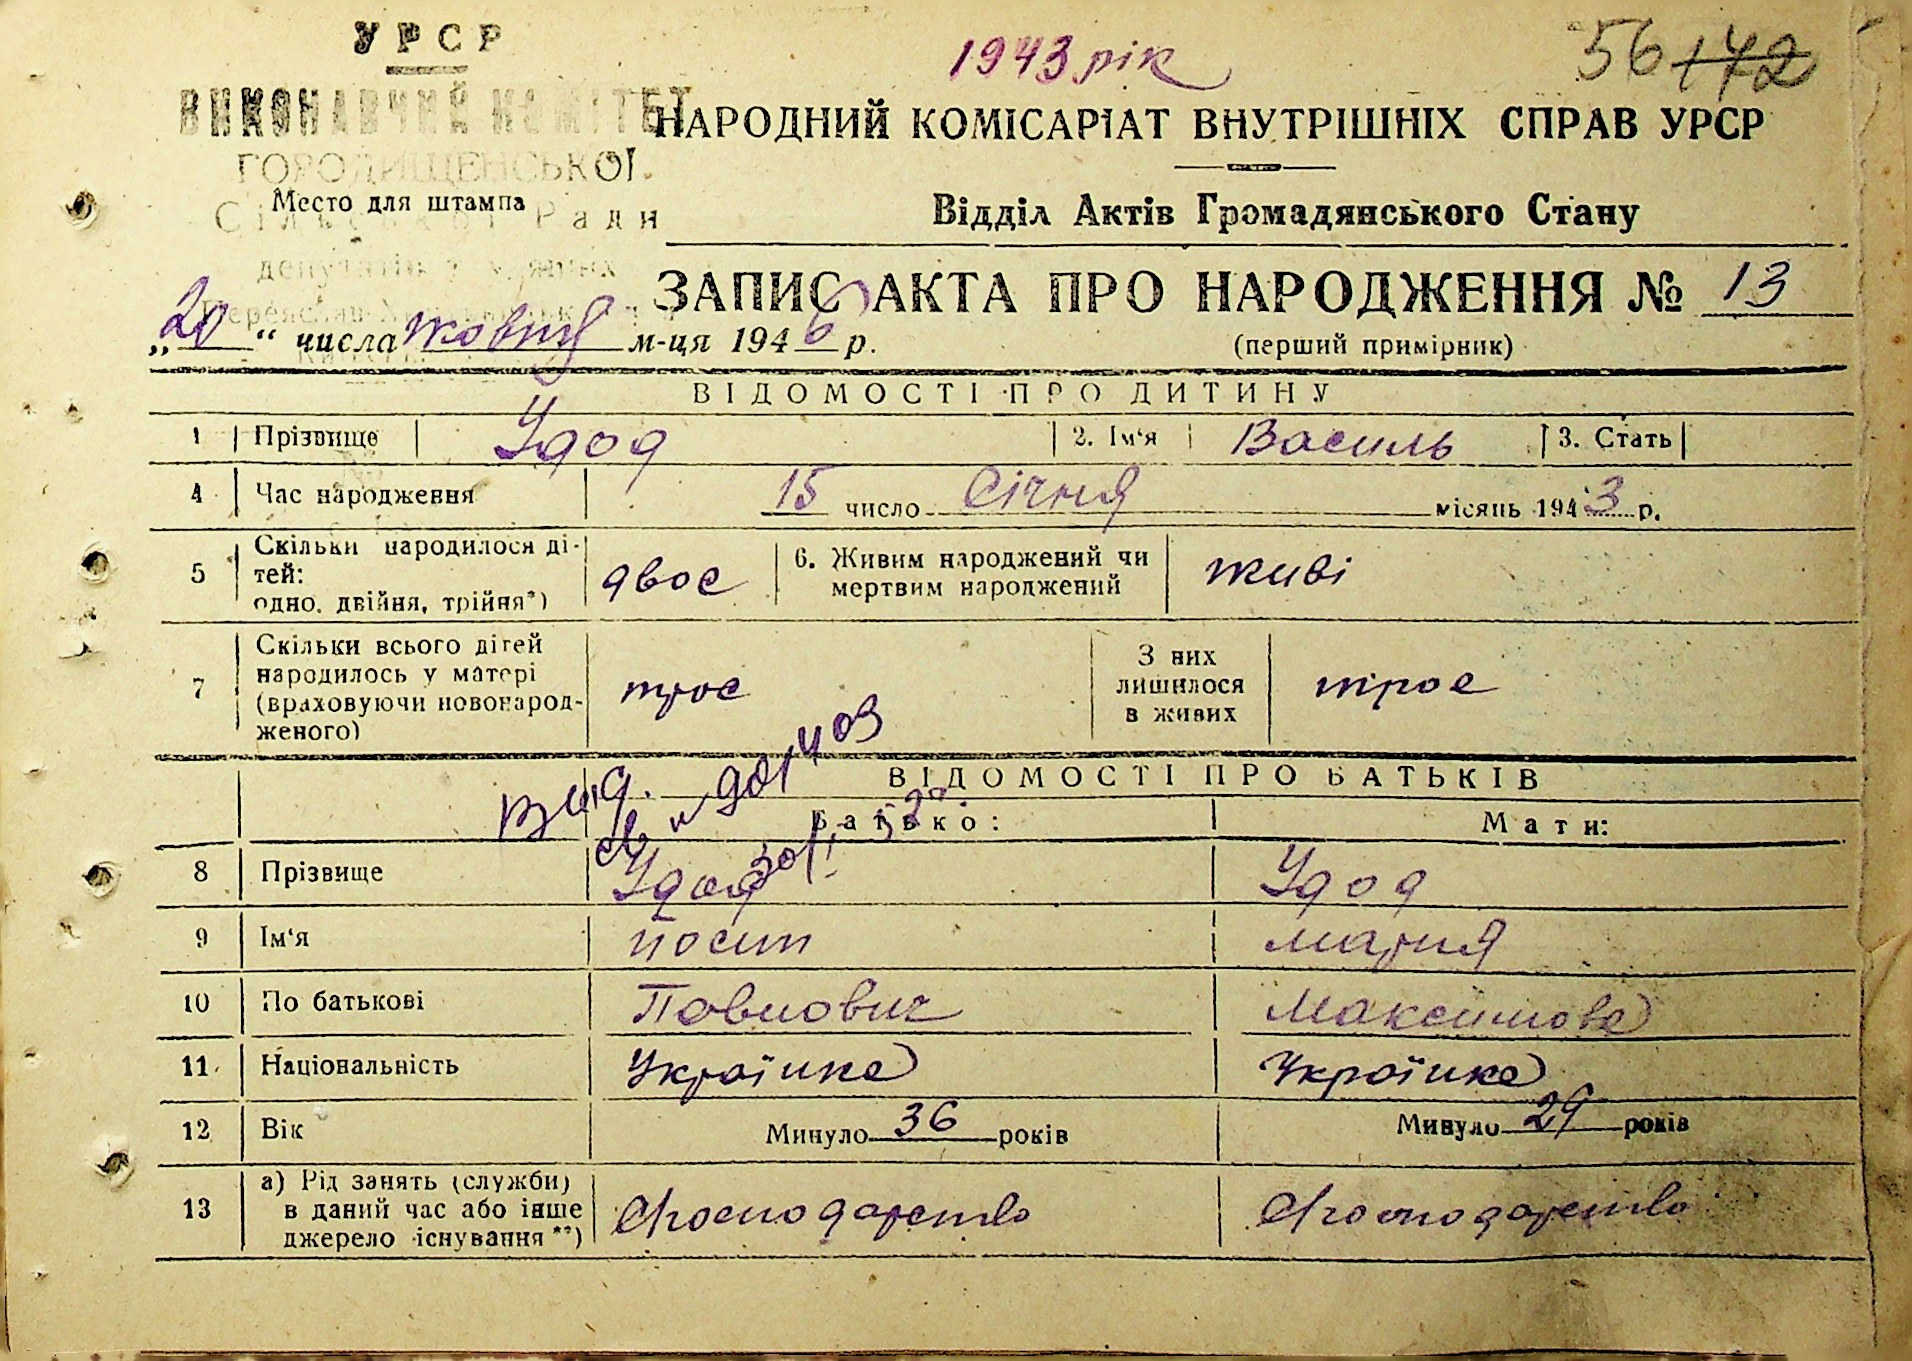 УРСР
1943 рік
56 142
ВИКОНАВЧИЙ КОМІТЕТ
НАРОДНИЙ КОМІСАРІАТ ВНУТРІШНІХ СПРАВ УРСР
ГОРОДИЩЕНСЬКОЇ
Место для штампа
Сільської Ради
Відділ Актів Громадянського Стану
депутатів трудящих
ЗАПИС АКТА ПРО НАРОДЖЕННЯ № 13
„20“ числа жовтня м-ця 1946 р.
(перший примірник)
ВІДОМОСТІ ПРО ДИТИНУ
1 Прізвище Удод 2. Ім'я Василь 3. Стать
4 Час народження 15 число Січня місяць 1943 р.
5 Скільки народилося ді-
тей:
одно, двійня, трійня*) двоє 6. Живим народжений чи
мертвим народжений живі
7 Скільки всього дітей
народилось у матері
(враховуючи новонарод-
женого) троє З них
лишилося
в живих троє
ВІДОМОСТІ ПРО БАТЬКІВ
Батько: Мати:
8 Прізвище Удод Удод
9 Ім'я Йосип Мария
10 По батькові Павлович Максимова
11 Національність Українка Українка
12 Вік Минуло 36 років Минуло 29 років
13 а) Рід занять (служби)
в даний час або інше
джерело існування **) Господарство Господарство